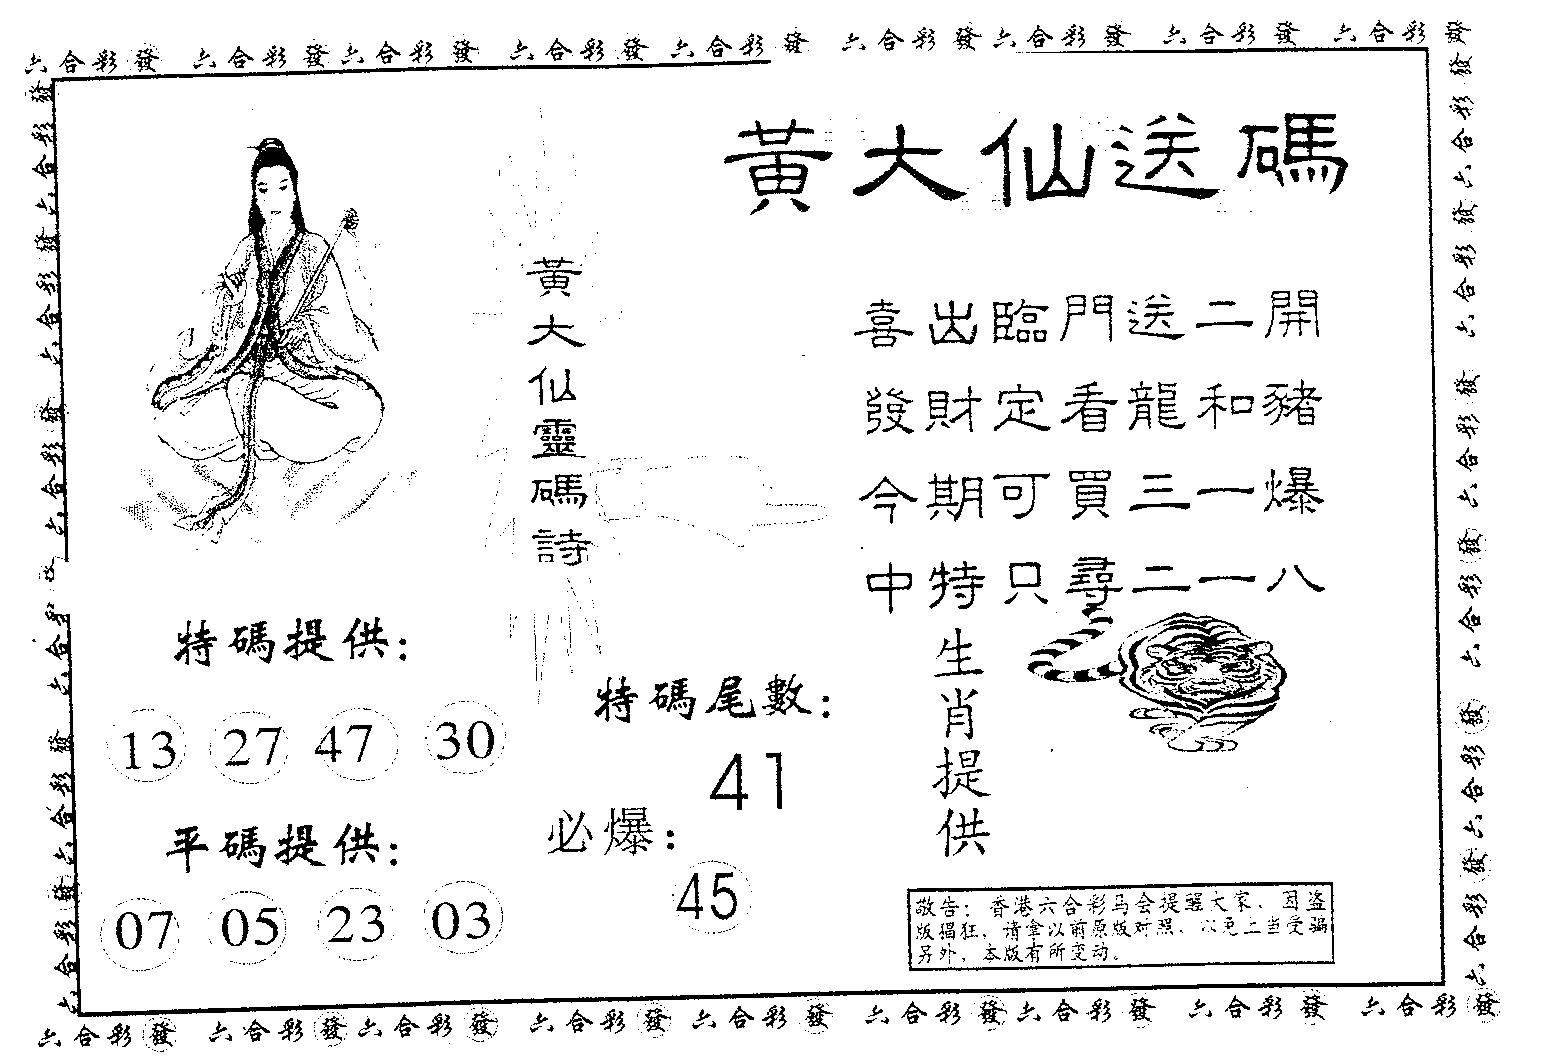 六合彩發 六合彩發六合彩發 六合彩發 六合彩發 六合彩發六合彩發 六合彩發 六合彩發
黃大仙送碼
黃大仙靈碼詩
喜出臨門送二開
發財定看龍和豬
今期可買三一爆
中特只尋二一八
特碼提供：
13 27 47 30
平碼提供：
07 05 23 03
特碼尾數：
41
必爆：
45
生肖提供
敬告：香港六合彩马会提醒大家，因盗
版猖狂，请拿以前原版对照，以免上当受骗
另外，本版有所变动。
發彩合六發彩合六發彩合六發彩合六發彩合六
發彩合六發彩合六 發彩合六發彩合六 發彩合六發彩合六
六合彩發 六合彩發六合彩發 六合彩發 六合彩發 六合彩發六合彩發 六合彩發 六合彩發